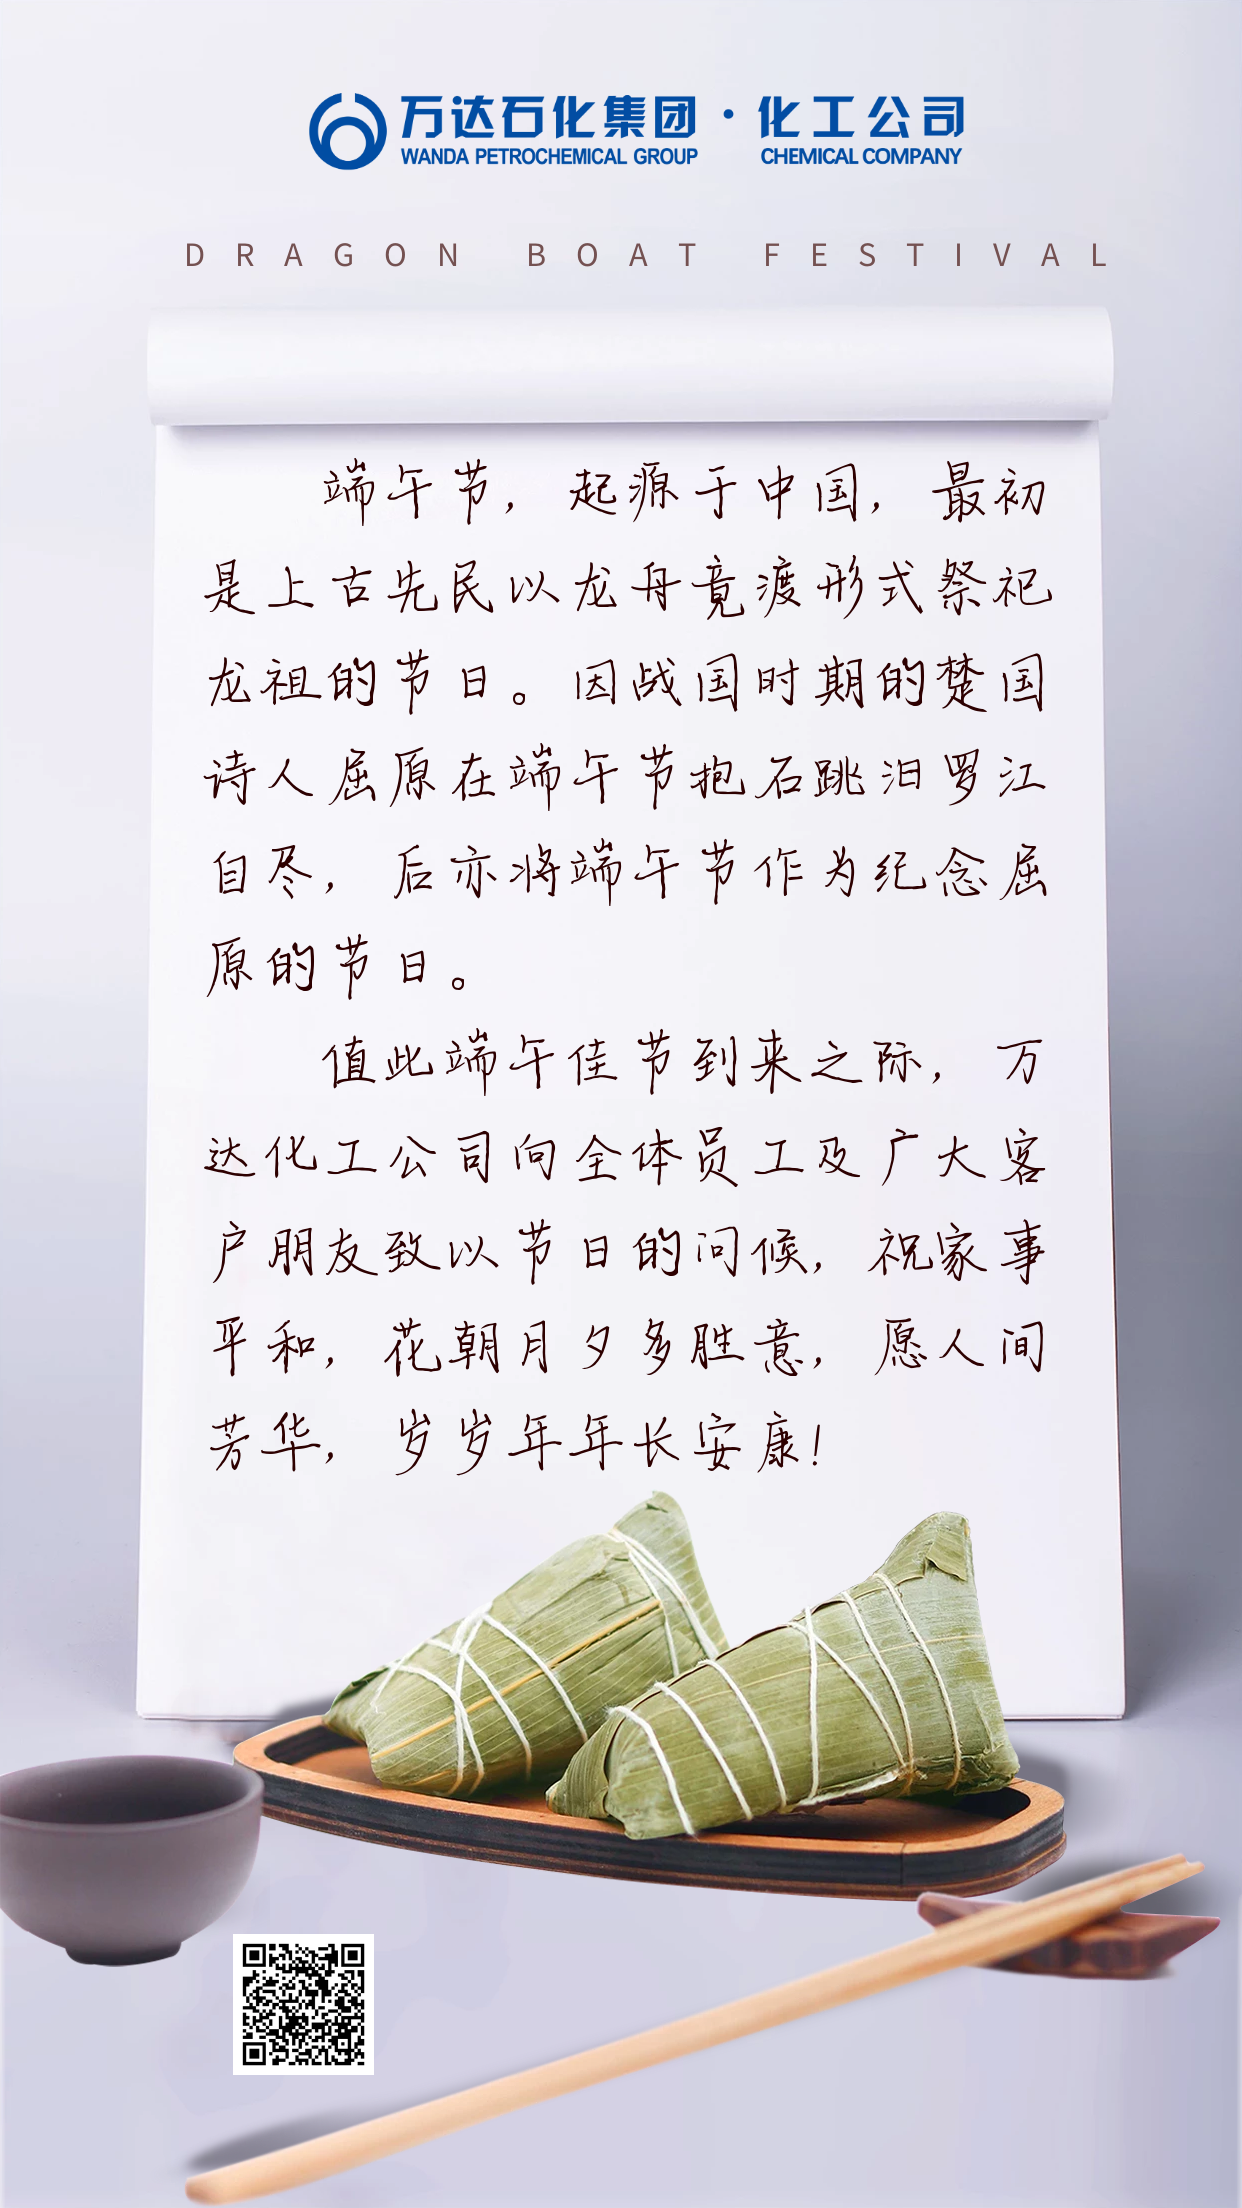 万达石化集团·化工公司
WANDA PETROCHEMICAL GROUP CHEMICAL COMPANY
DRAGON BOAT FESTIVAL
端午节，起源于中国，最初
是上古先民以龙舟竟渡形式祭祀
龙祖的节日。因战国时期的楚国
诗人屈原在端午节抱石跳汨罗江
自尽，后亦将端午节作为纪念屈
原的节日。
值此端午佳节到来之际，万
达化工公司向全体员工及广大客
户朋友致以节日的问候，祝家事
平和，花朝月夕多胜意，愿人间
芳华，岁岁年年长安康！